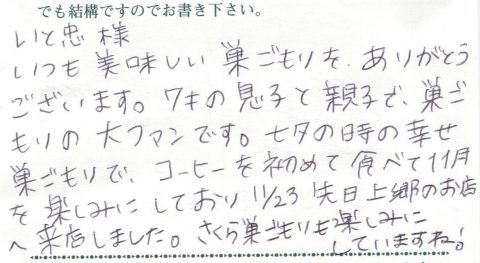 でも結構ですのでお書き下さい。
いと忠 様
いつも 美味しい 巣ごもりを、ありがとう
ございます。7才の息子と親子で、巣ご
もりの大ファンです。七夕の時の幸せ
巣ごもりで、コーヒーを初めて食べて11月
を楽しみにしており 11/23 先日上郷のお店
へ来店しました。さくら巣ごもりも楽しみに
していますね!